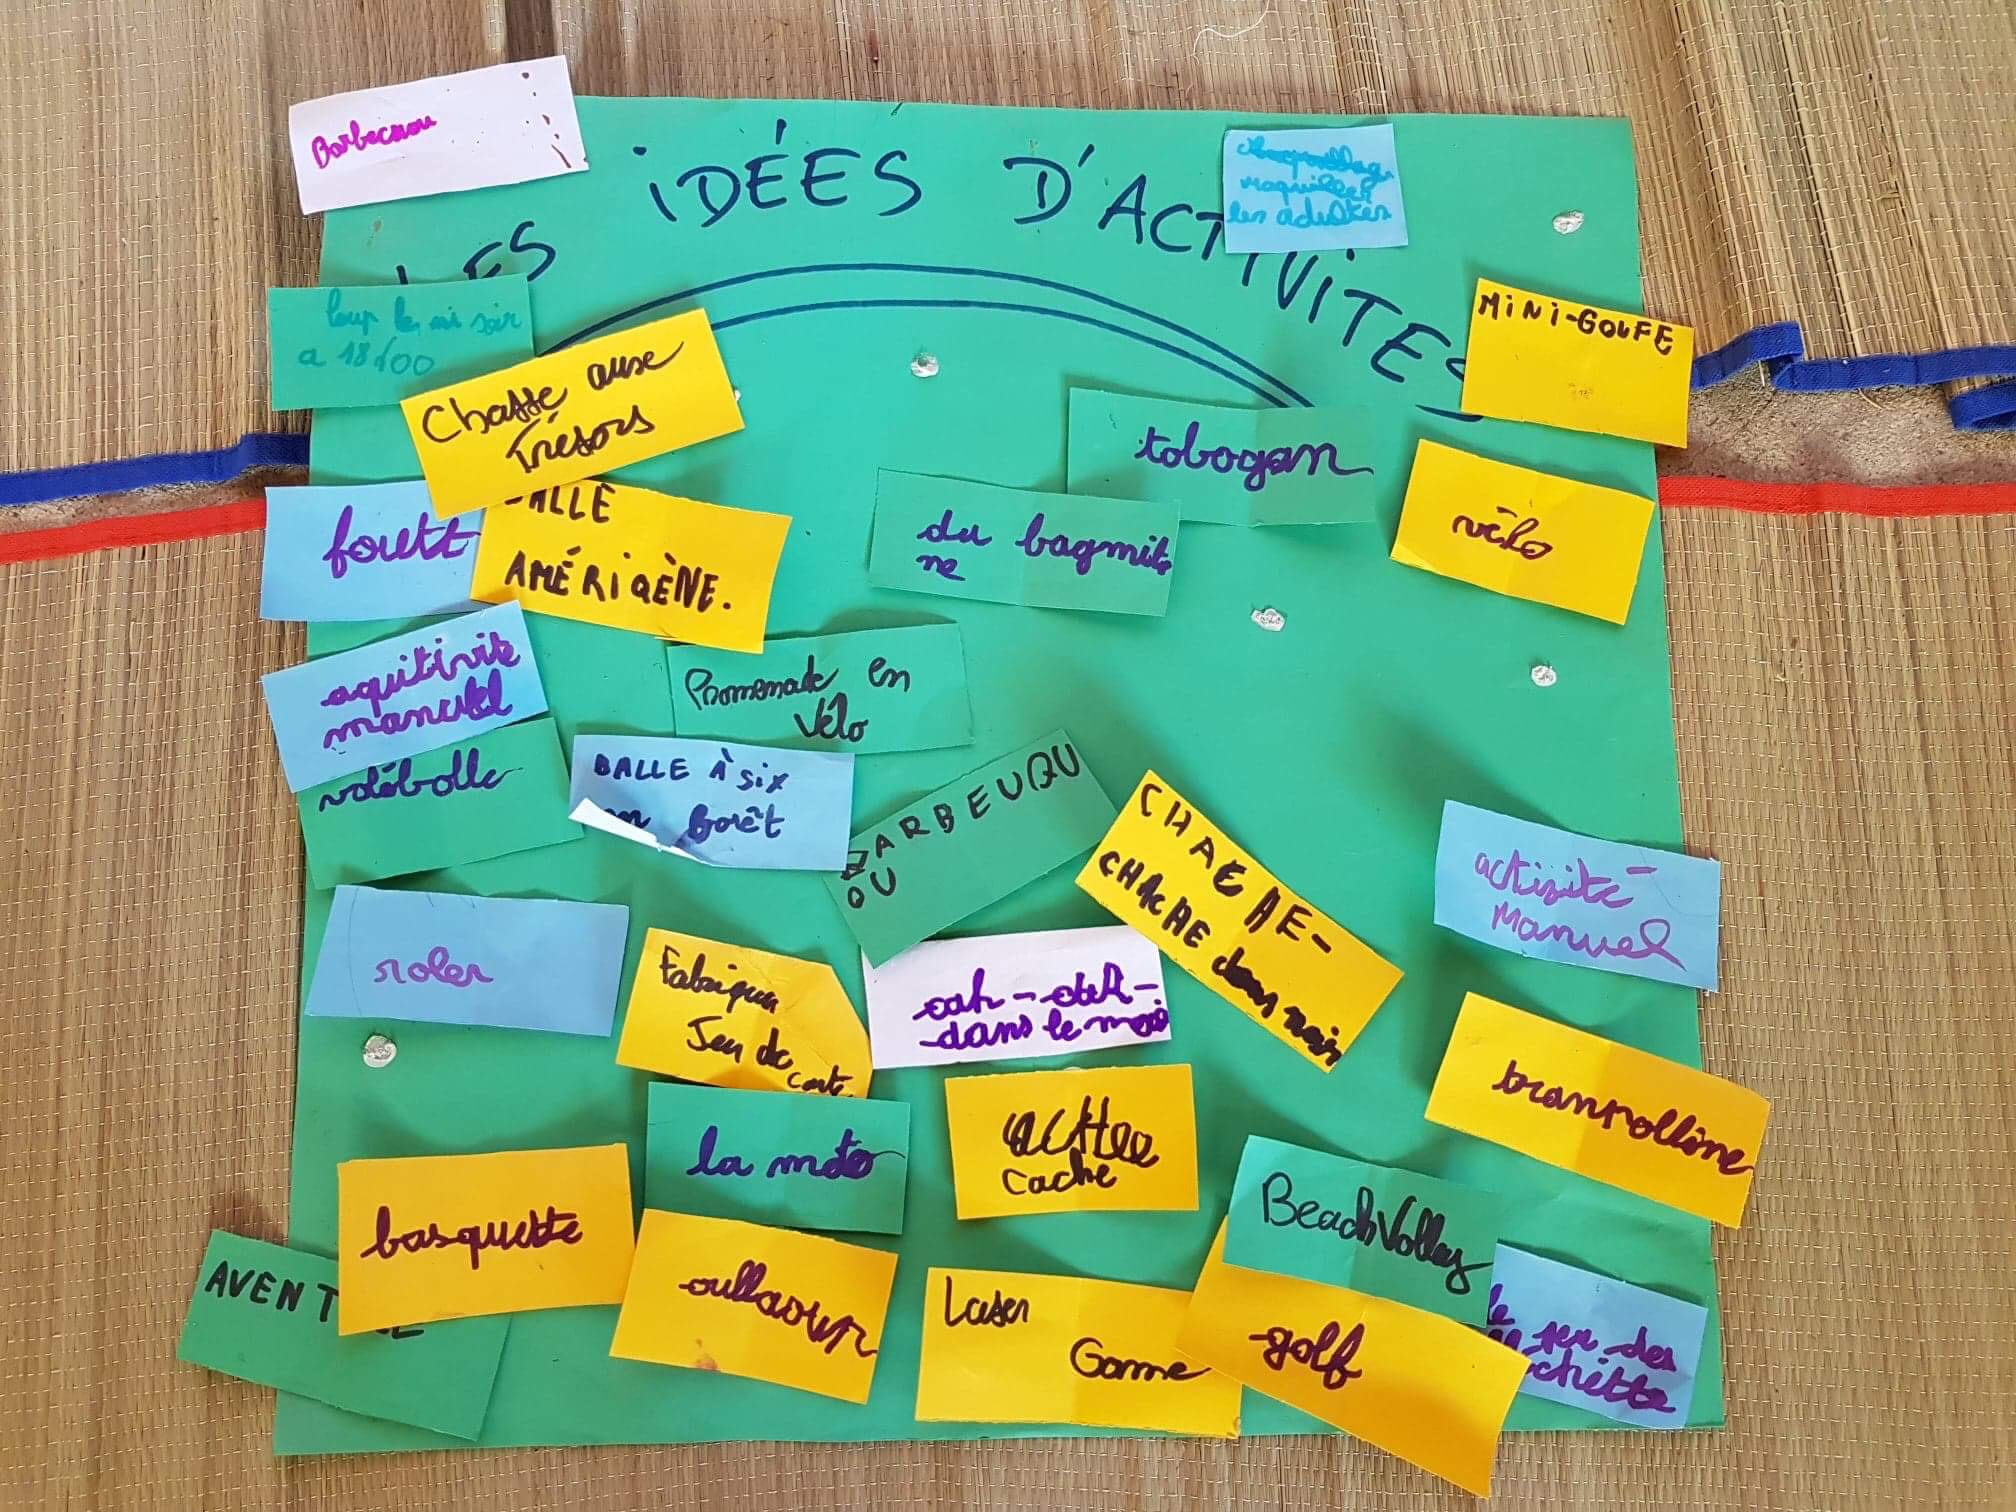 LES IDÉES D'ACTIVITÉS
maquiller
les adultes
MINI-GOLFE
a 18h00
Chasse ause
Trésors
tobogan
foutt
BALLE
AMÉRIQÈNE.
du bagmito
ne
vélo
aquitivité
manuel
Promenade en
Vélo
volébolle
BALLE À Six
en forêt
BARBEUQU
OU
CHACHE-
CHACHE dans noir
activité
Manuel
roler
Fabriqua
Jeu de
carte
dans le noir
tranpolline
la moto
cache
basquette
Beach Volley
AVENT
Laser
Game
golf
jeu des